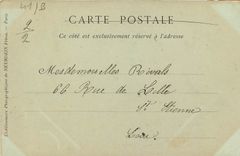 41/B
2/2
CARTE POSTALE
Ce côté est exclusivement réservé à l'adresse
Mesdemoiselles Rivals
66 Rue de Lille
St Etienne
Loire
Etablissements Photographiques de NEURDEIN Frères. — Paris